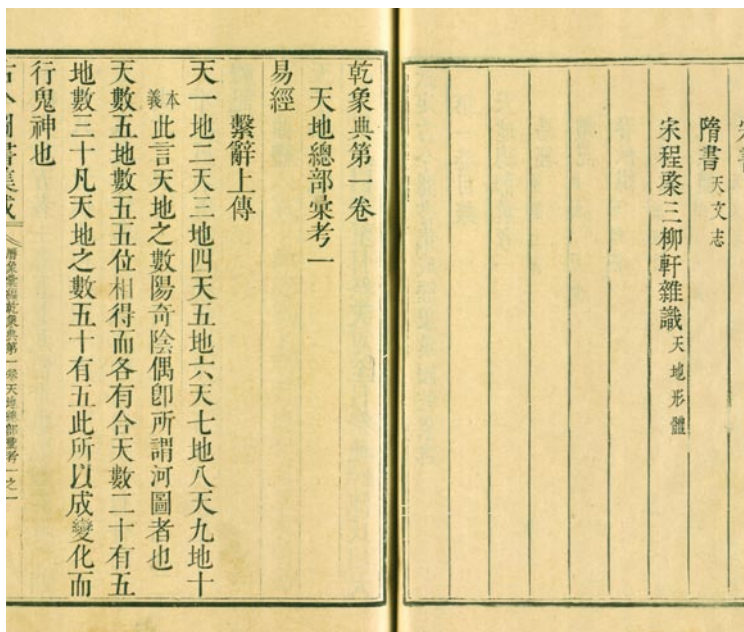 隋書天文志
宋程棨三柳軒雜識天地形體
乾象典第一卷
天地總部彙考一
易經
繫辭上傳
天一地二天三地四天五地六天七地八天九地十
本義此言天地之數陽奇陰偶卽所謂河圖者也
天數五地數五五位相得而各有合天數二十有五
地數三十凡天地之數五十有五此所以成變化而
行鬼神也
古今圖書集成曆象彙編乾象典第一卷天地總部彙考一之一